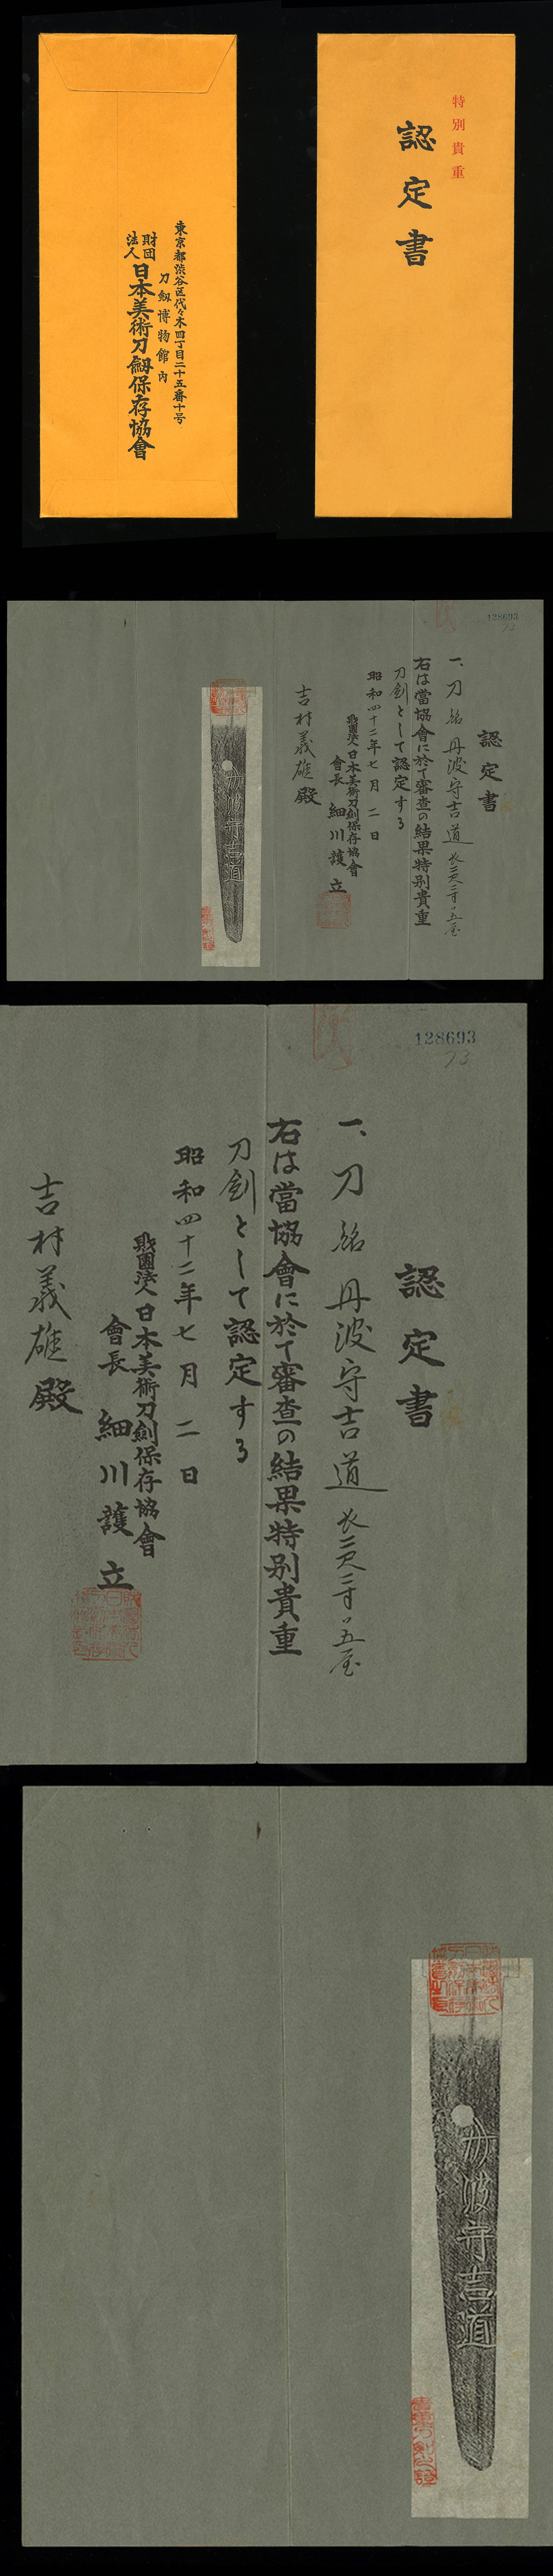 東京都渋谷区代々木四丁目二十五番十号
刀劔博物館内
財団法人
日本美術刀劔保存協會
特別貴重
認定書
128693
73
認定書
一、刀 銘 丹波守吉道 長二尺二寸五分
右は當協會に於て審査の結果特別貴重
刀劍として認定する
昭和四十二年七月二日
財團法人日本美術刀劍保存協會
會長 細川護立
吉村義雄殿
丹波守吉道
128693
73
認定書
一、刀 銘 丹波守吉道 長二尺二寸五分
右は當協會に於て審査の結果特別貴重
刀劍として認定する
昭和四十二年七月二日
財團法人日本美術刀劍保存協會
會長 細川護立
吉村義雄殿
丹波守吉道